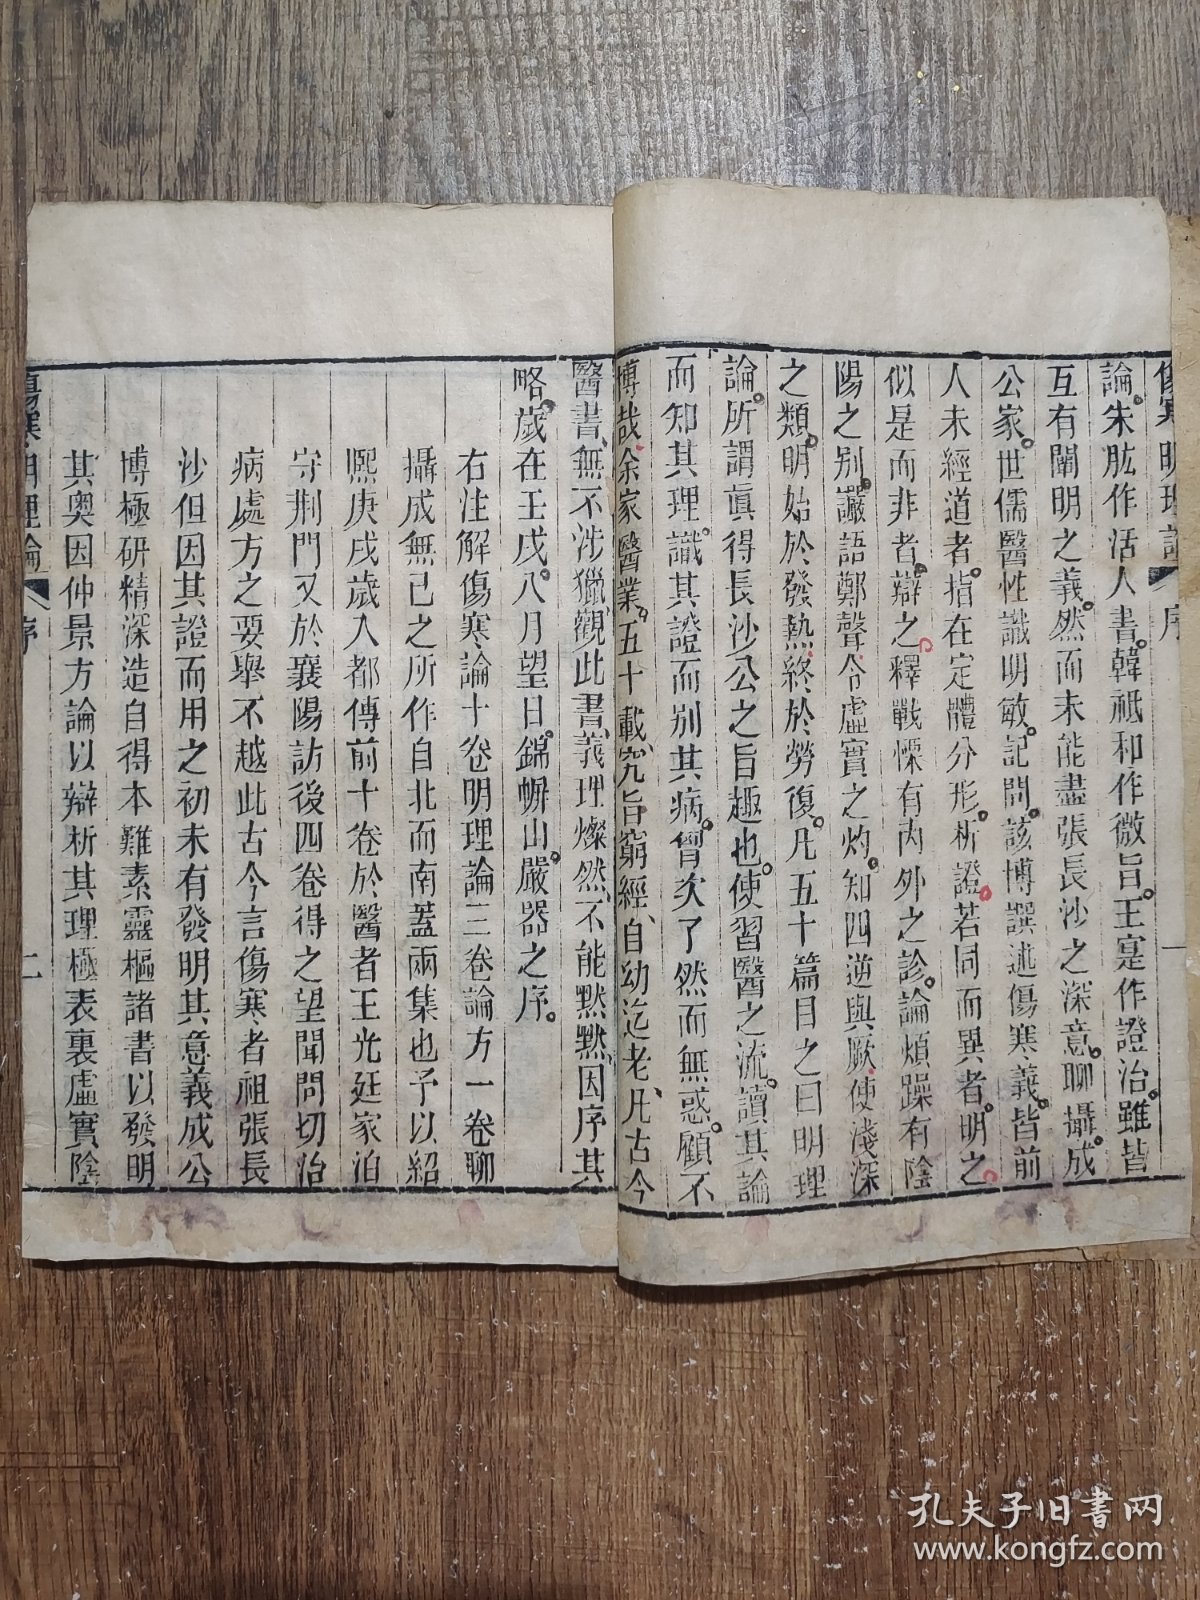 傷寒明理論 序 一
論。朱肱作活人書。韓祗和作微旨。王寔作證治。雖皆
互有闡明之義。然而未能盡張長沙之深意。聊攝。成
公家。世儒醫性識明敏。記問該博。譔述傷寒義。皆前
人未經道者。指在定體分形析證。若同而異者。明之。
似是而非者。辯之。釋戰慄有內外之診。論煩躁有陰
陽之別。讝語鄭聲令虛實之灼。知四逆與厥。使淺深
之類。明始於發熱。終於勞復。凡五十篇。目之曰明理
論。所謂眞得長沙公之旨趣也。使習醫之流。讀其論
而知其理。識其證而別其病。胷次了然而無惑。顧不
博哉。余家醫業五十載、究旨窮經、自幼迄老、凡古今
醫書、無不涉獵、觀此書、義理燦然、不能默默、因序其
略。歲在壬戌。八月望日。錦㡡山。嚴器之序。
右注解傷寒論十卷明理論三卷論方一卷聊
攝成無已之所作自北而南蓋兩集也予以紹
熙庚戌歲入都傳前十卷於醫者王光廷家洎
守荆門又於襄陽訪後四卷得之望聞問切治
病處方之要舉不越此古今言傷寒者祖張長
沙但因其證而用之初未有發明其意義成公
博極研精深造自得本難素靈樞諸書以發明
其奧因仲景方論以辯析其理極表裏虛實陰
傷寒明理論 序 二
孔夫子旧书网
www.kongfz.com